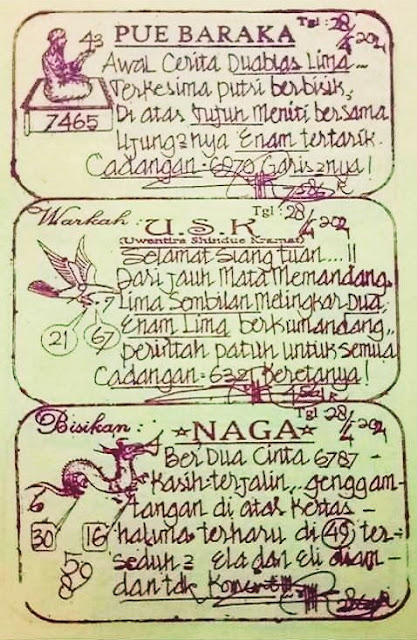 PUE BARAKA
Tgl: 28/4 202
43
Awal Cerita Duablas Lima...
Terkesima Putri berbisik,
Di atas Tujuh Meniti bersama
7465
Ujung2nya Enam tertarik.
Cadangan = 6270 Garis2nya!
Warkah :
U.S.K
Tgl: 28/4 202
(Uwentira Shindue Kramat)
Selamat Siang tuan....!!
Dari jauh Mata Memandang,
Lima Sembilan Melingkar Dua,
21 67
Enam Lima berkumandang,,
perintah patuh untuk semua
Cadangan = 6321 Deretanya!
Bisikan :
NAGA
Tgl 28/4 202
Ber Dua Cinta 6787 -
Kasih terjalin,, genggam-
tangan di atas Kertas -
30 16
haluma terharu di 49 ter-
seduh2 Ela dan Eli diam-
dan tdk Koment